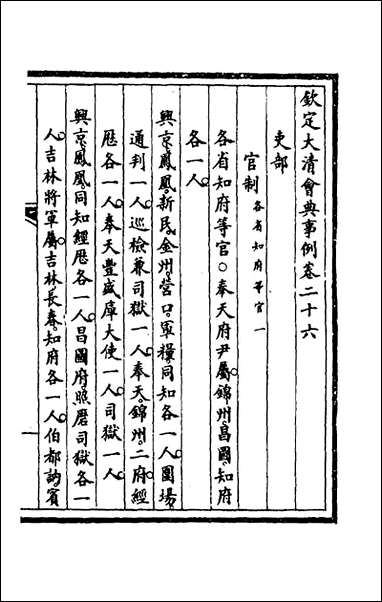 欽定大清會典事例卷二十六
吏部
官制各省知府等官一
各省知府等官○奉天府尹屬錦州昌圖知府
各一人
興京鳳凰新民金州營口軍糧同知各一人圍場
通判一人巡檢兼司獄一人奉天錦州二府經
歷各一人奉天豐盛庫大使一人司獄一人
興京鳳凰同知經歷各一人昌圖府照磨司獄各一
人吉林將軍屬吉林長春知府各一人伯都訥賓